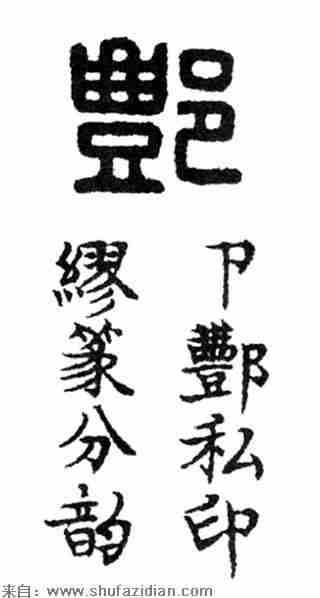 酆
卩酆私印
繆篆分韵
来自：www.shufazidian.com